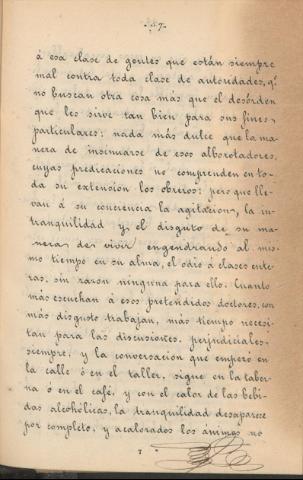 - 7 -
á esa clase de gentes que están siempre
mal contra toda clase de autoridades, q.e
no buscan otra cosa más que el desórden
que les sirve tan bien para sus fines
particulares: nada más dulce que la ma-
nera de insinuarse de esos alborotadores,
cuyas predicaciones no comprenden en to-
da su extensión los obreros: pero que lle-
van á su conciencia la agitacion, la in-
tranquilidad y el disgusto de su ma-
nera de vivir engendrando al mis-
mo tiempo en su alma, el odio á clases ente-
ras, sin razon ninguna para ello. Cuanto
más escuchan á esos pretendidos doctores, con
más disgusto trabajan, más tiempo necesi-
tan para las discusiones, perjudiciales
siempre, y la conversación que empezó en
la calle ó en el taller, sigue en la taber-
na ó en el café, y con el calor de las bebi-
das alcohólicas, la tranquilidad desaparese
por completo, y acalorados los ánimos no